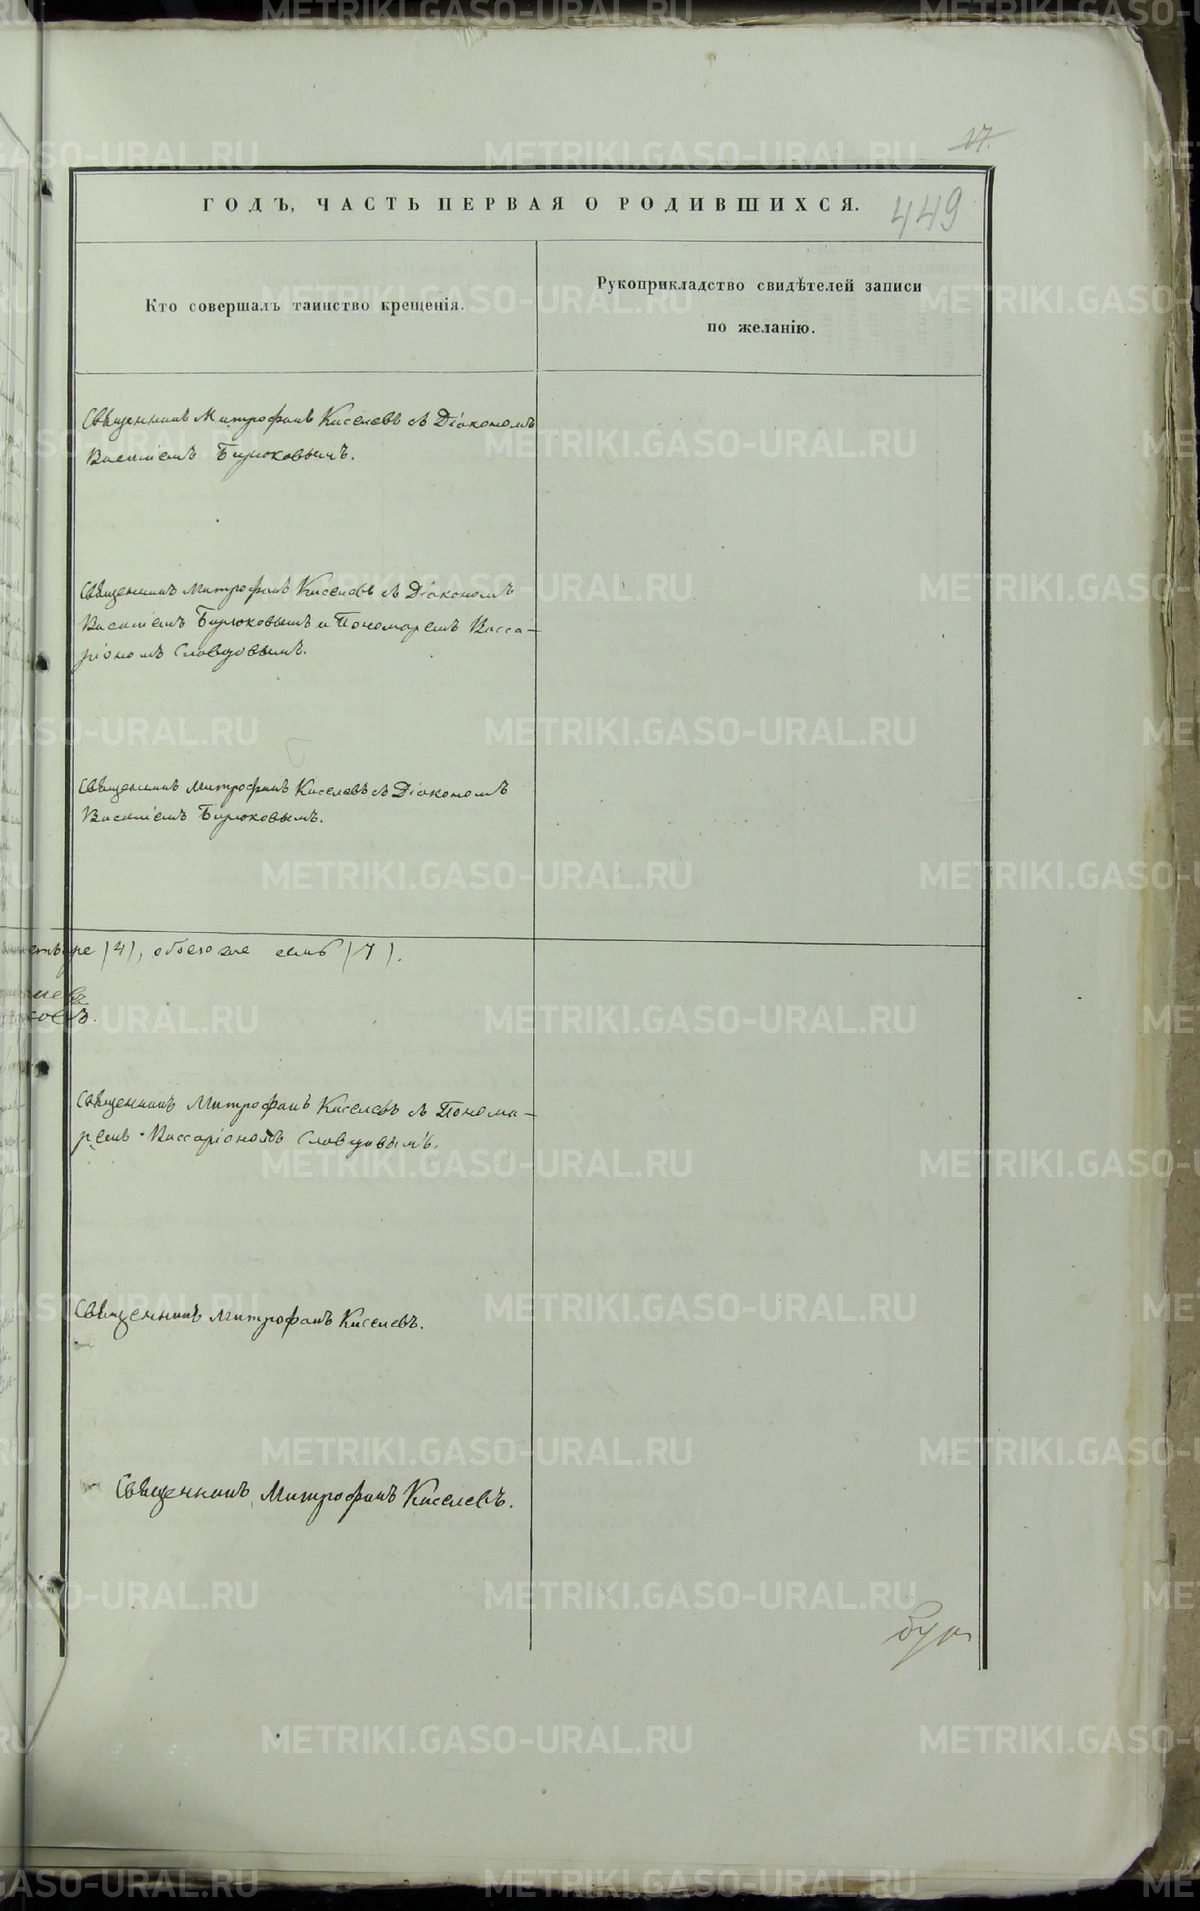 17.
ГОДЪ, ЧАСТЬ ПЕРВАЯ О РОДИВШИХСЯ. 449
Кто совершалъ таинство крещенія.
Рукоприкладство свидѣтелей записи
по желанію.
Священникъ Митрофанъ Киселевъ съ Діакономъ
Василіемъ Бирюковымъ.
Священникъ Митрофанъ Киселевъ съ Діакономъ
Василіемъ Бирюковымъ и Пономаремъ Висса-
ріономъ Словцовымъ.
Священникъ Митрофанъ Киселевъ съ Діакономъ
Василіемъ Бирюковымъ.
(4), обоего семь (7).
Священникъ Митрофанъ Киселевъ съ Понома-
ремъ Виссаріономъ Словцовымъ.
Священникъ Митрофанъ Киселевъ.
Священникъ Митрофанъ Киселевъ.
METRIKI.GASO-URAL.RU